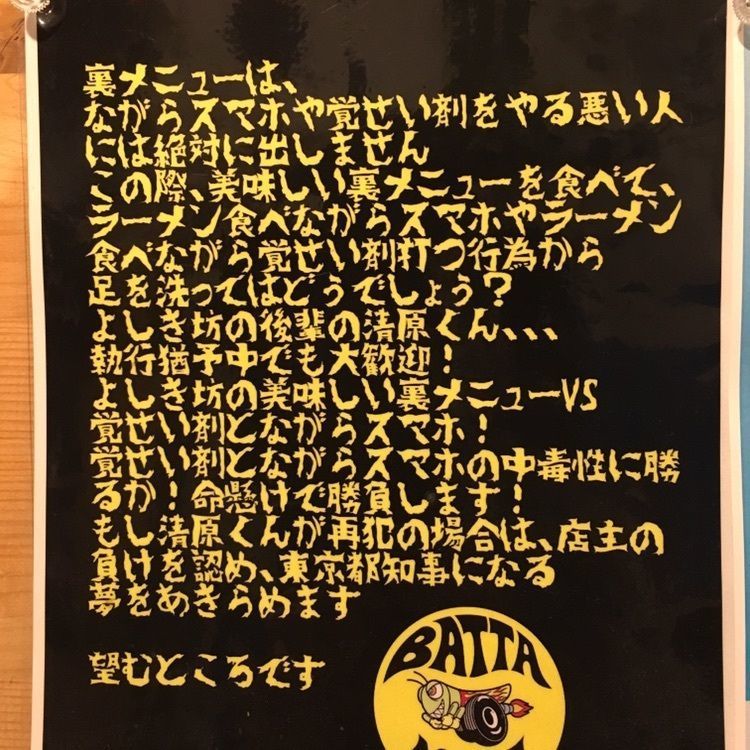 裏メニューは、
ながらスマホや覚せい剤をやる悪い人
には絶対に出しません
この際、美味しい裏メニューを食べて、
ラーメン食べながらスマホやラーメン
食べながら覚せい剤打つ行為から
足を洗ってはどうでしょう?
よしき坊の後輩の清原くん、、、
執行猶予中でも大歓迎!
よしき坊の美味しい裏メニューVS
覚せい剤とながらスマホ!
覚せい剤とながらスマホの中毒性に勝
るか!命懸けで勝負します!
もし清原くんが再犯の場合は、店主の
負けを認め、東京都知事になる
夢をあきらめます
望むところです
BATTA